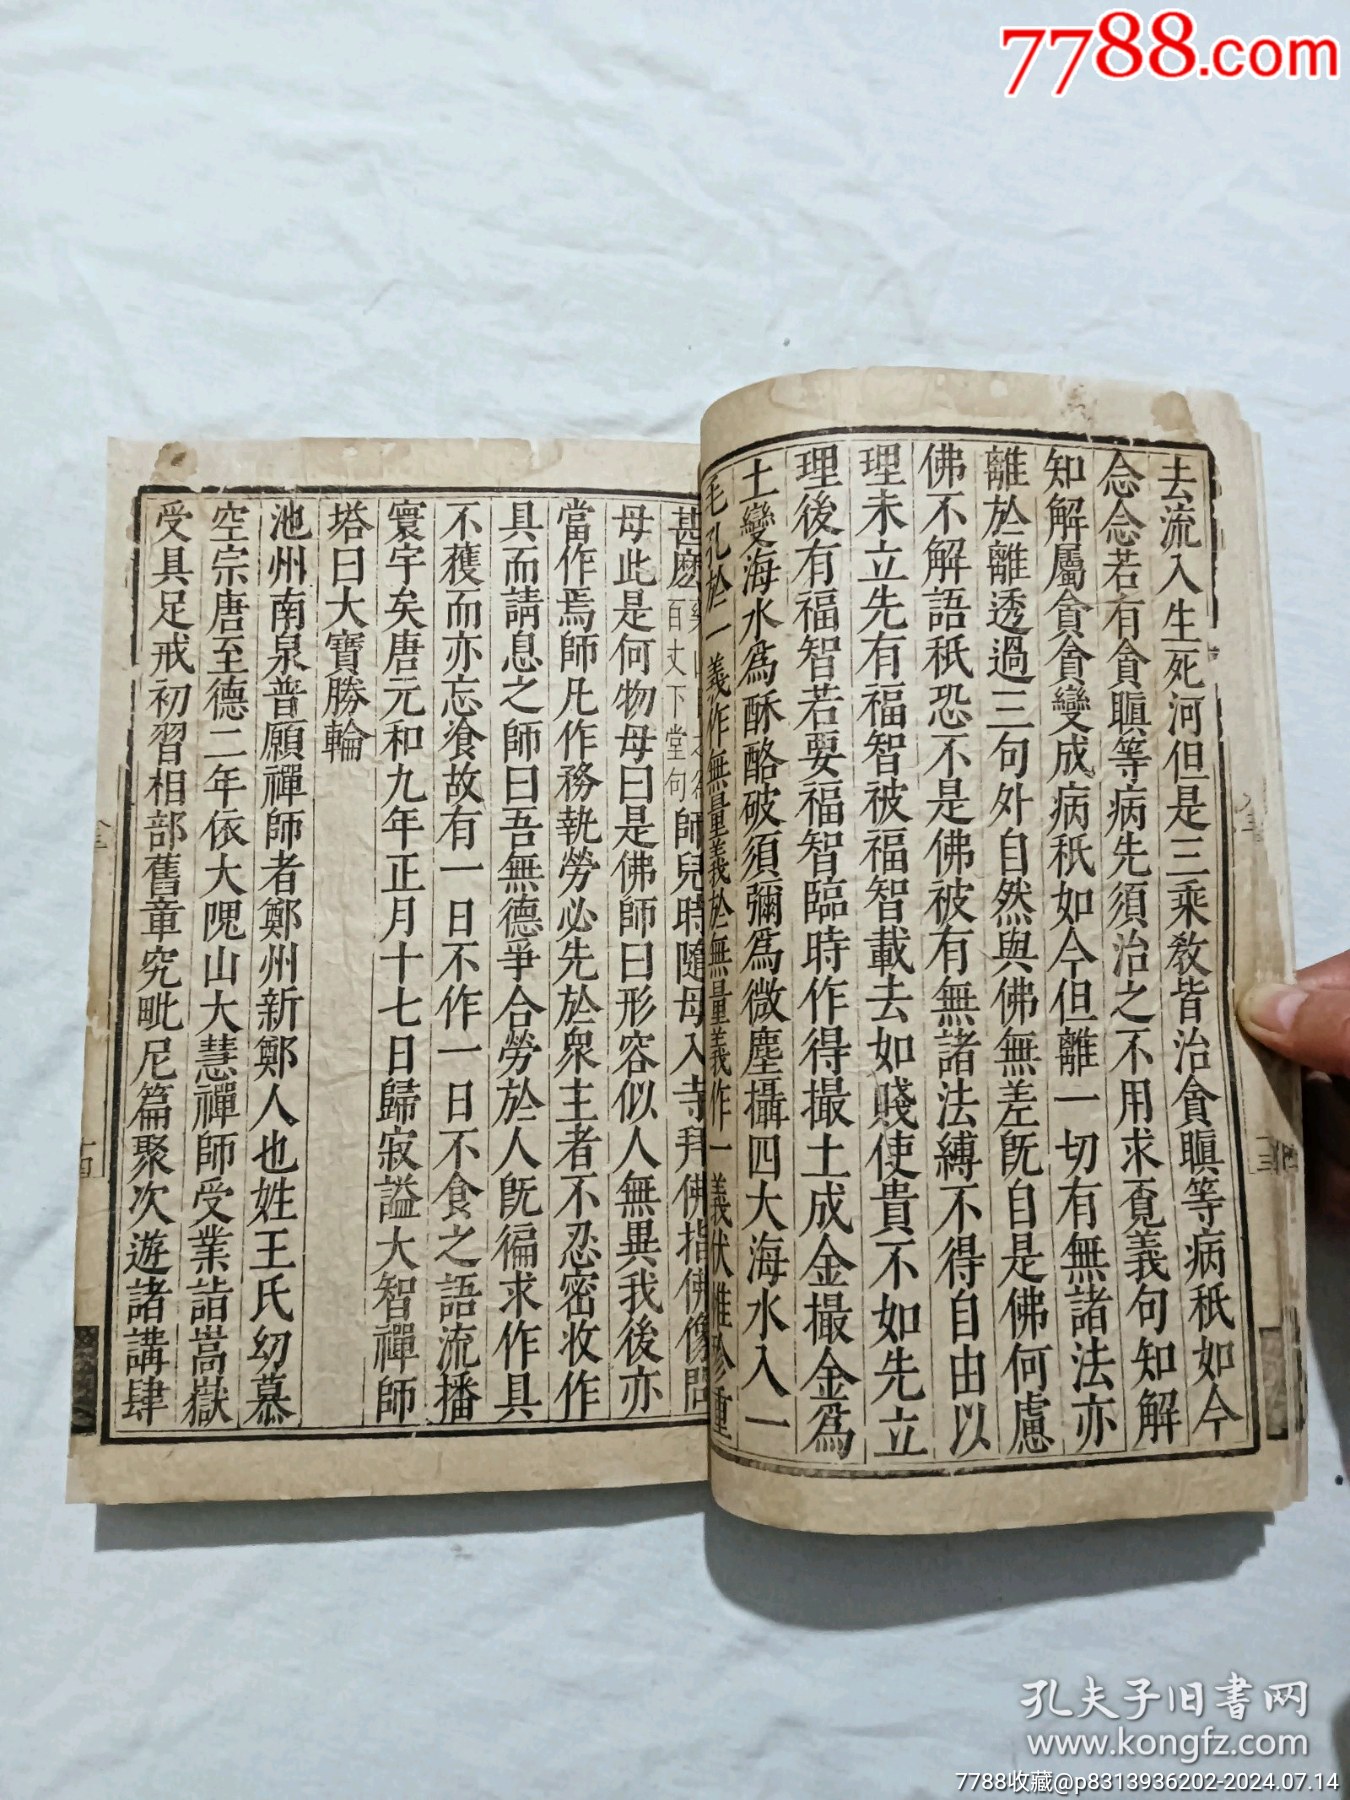 7788.com
去流入生死河但是三乘教皆治貪瞋等病秖如今
念念若有貪瞋等病先須治之不用求覓義句知解
知解屬貪貪變成病秖如今但離一切有無諸法亦
離於離透過三句外自然與佛無差旣自是佛何慮
佛不解語秖恐不是佛被有無諸法縛不得自由以
理未立先有福智被福智載去如賤使貴不如先立
理後有福智若要福智臨時作得撮土成金撮金爲
土變海水爲酥酪破須彌爲微塵攝四大海水入一
毛孔於一義作無量義於無量義作一義伏惟珍重
甚麽
百丈下堂句
師兒時隨母入寺拜佛指佛像問
母此是何物母曰是佛師曰形容似人無異我後亦
當作焉師凡作務執勞必先於衆主者不忍密收作
具而請息之師曰吾無德爭合勞於人旣徧求作具
不獲而亦忘飡故有一日不作一日不食之語流播
寰宇矣唐元和九年正月十七日歸寂謚大智禪師
塔曰大寶勝輪
池州南泉普願禪師者鄭州新鄭人也姓王氏幼慕
空宗唐至德二年依大隗山大慧禪師受業詣嵩嶽
受具足戒初習相部舊章究毗尼篇聚次遊諸講肆
孔夫子旧書网
www.kongfz.com
7788收藏@p8313936202-2024.07.14